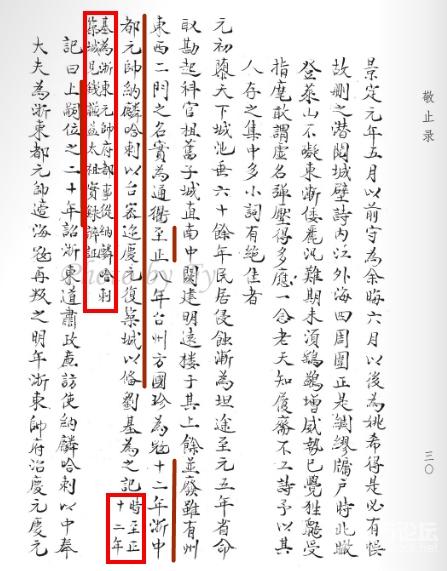 敬止录
三〇
景定元年五月以前守為余晦六月以後為姚希得是必有悞
故删之潛閱城壁詩内江外海四周圍正是綢繆牖户時此職
登萊山不礙東漸倭麗汎難期未須鵝鸛增威勢已覺狌鼯受
指麾敢謂虛名彈壓得多應一念老天知履齋不工詩予以其
人存之集中多小詞有絶佳者
元初隳天下城池垂六十餘年民居侵蝕漸為坦途至元五年省命
取勘起科官租舊子城直南中闕建明遠樓于其上餘並廢雖有州
東西二門之名實為通衢至正八年台州方國珍為亂十二年浙中
都元帥納麟哈剌以台寇迩慶元復築城以俻劉基為之記
時至正
十二年
基為浙東元帥府都事從納麟哈剌
築城見錢謙益太祖實錄辨証
記曰上嗣位之二十年詔浙東道肅政亷訪使納麟哈剌以中奉
大夫為浙東都元帥造海宼再叛之明年浙東帥府治慶元慶元